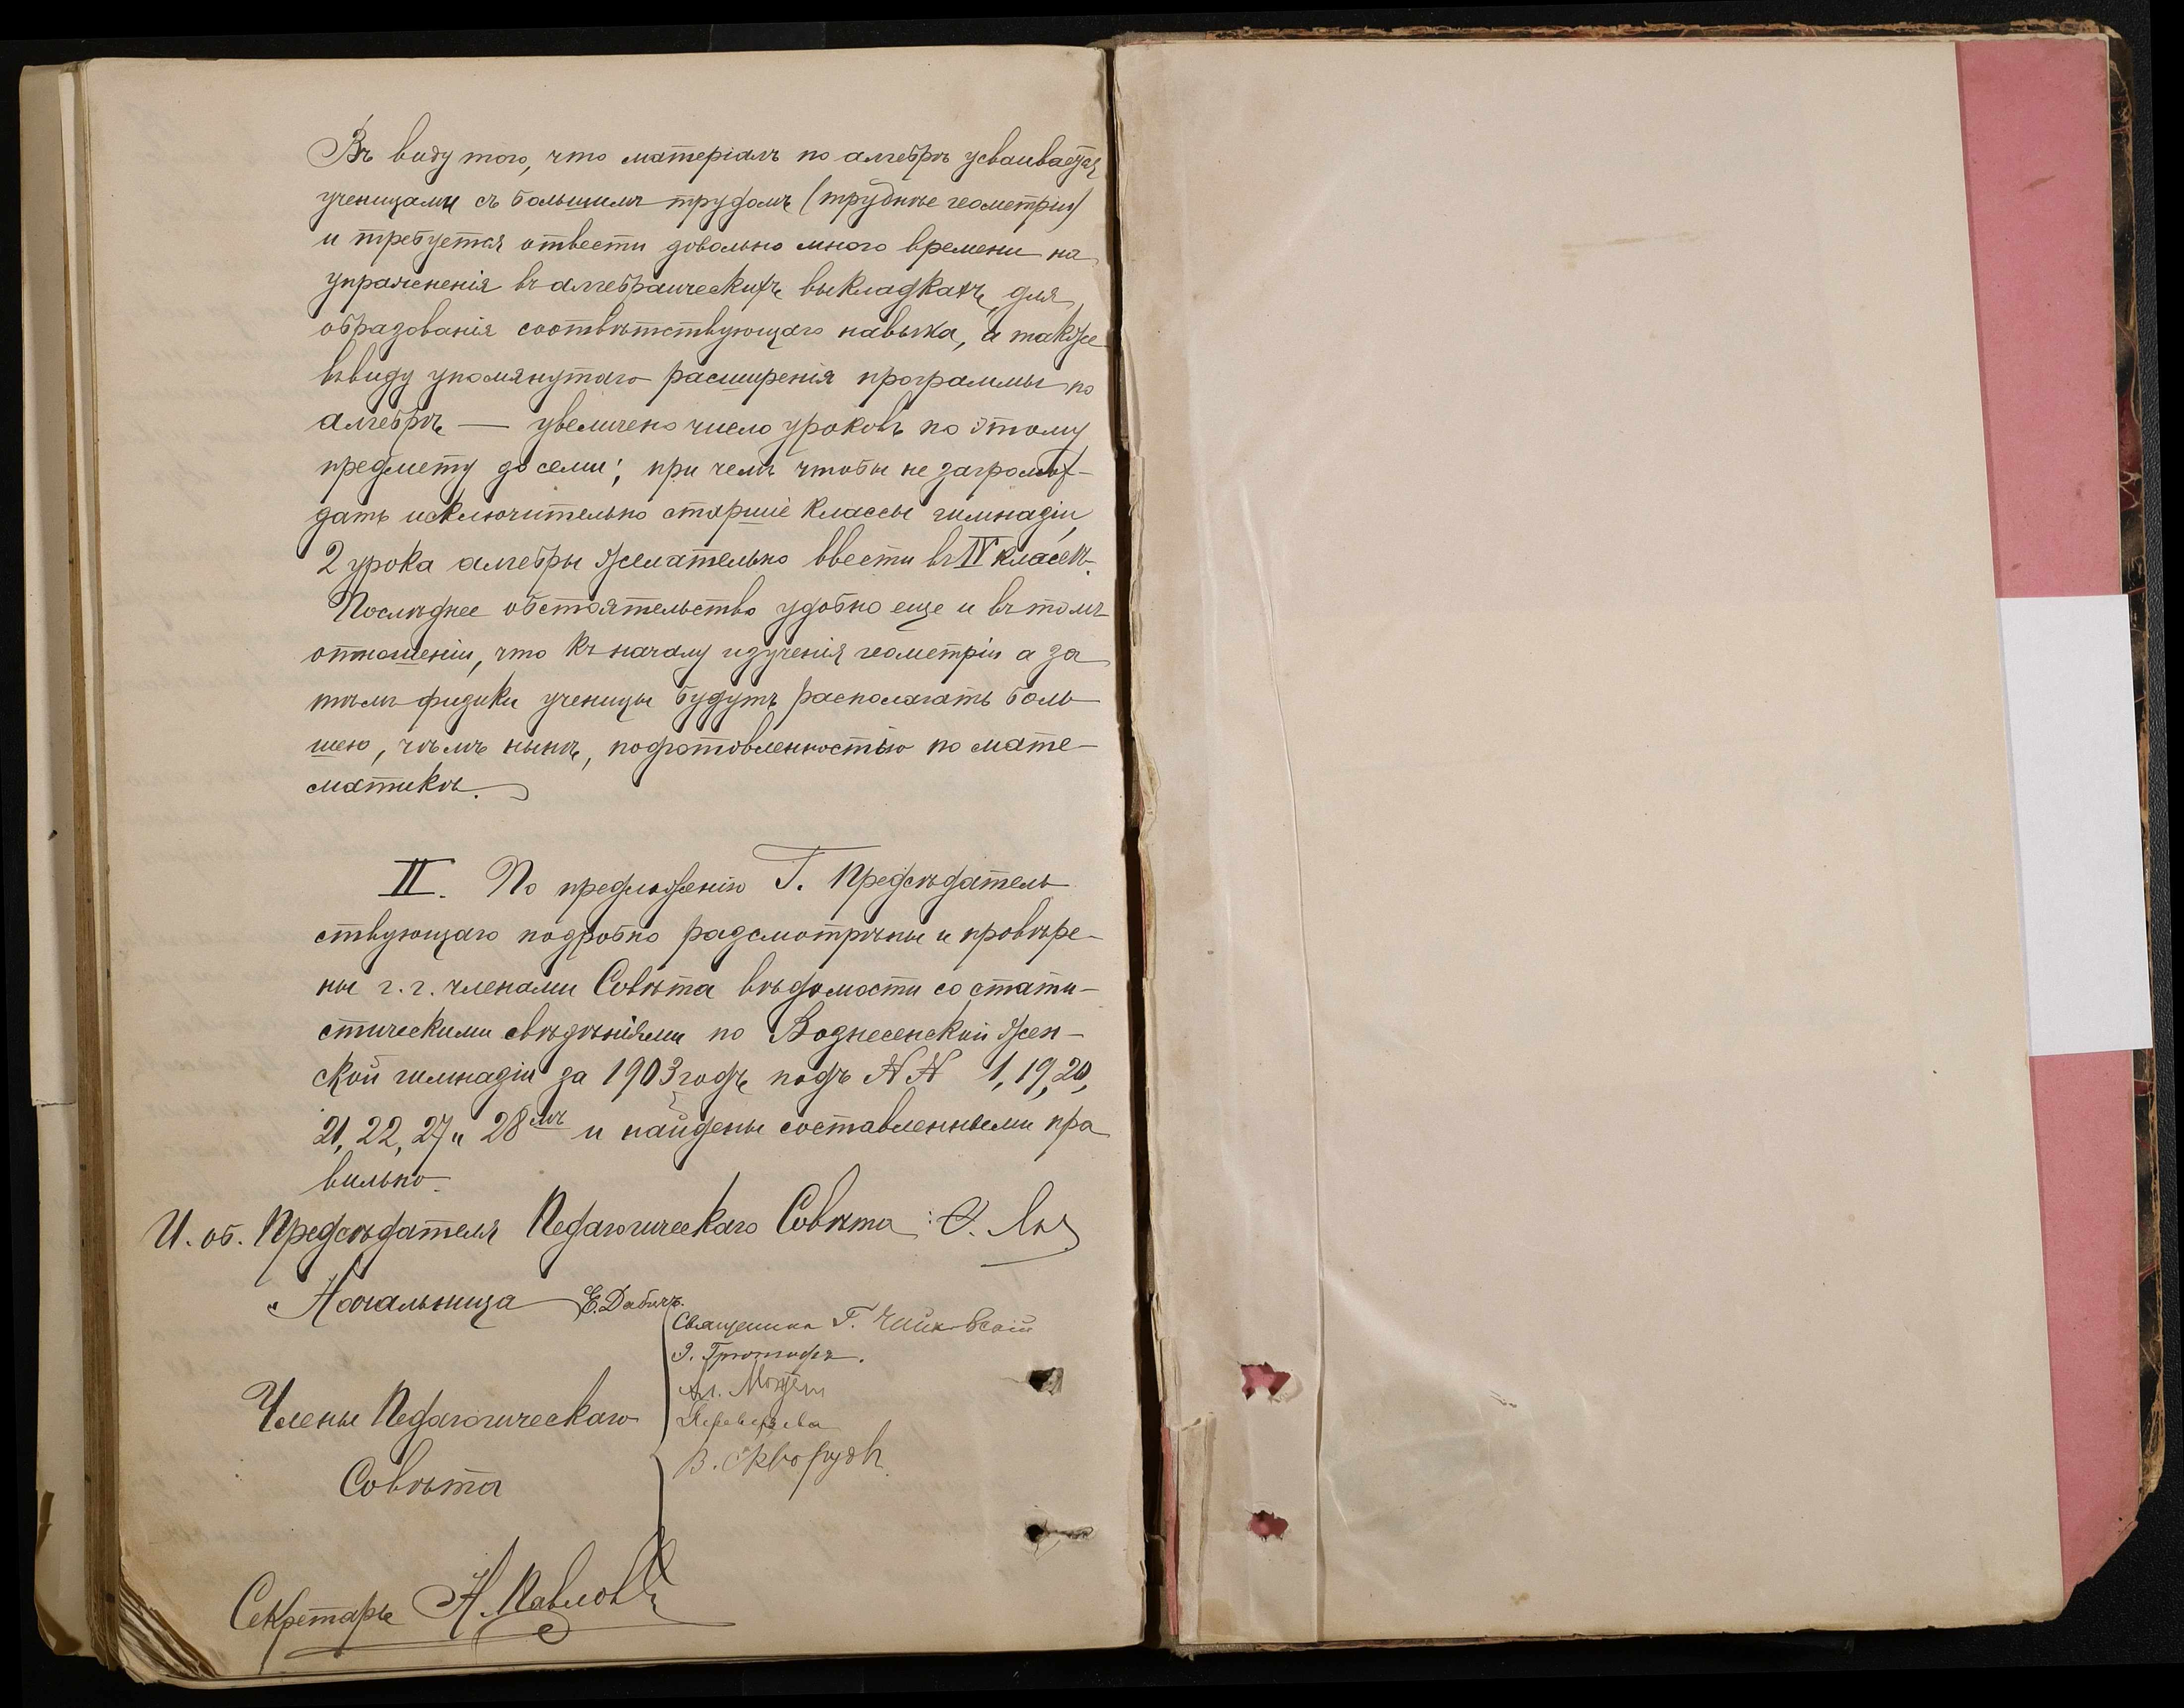 Въ виду того, что матеріалъ по алгебрѣ усваивается
ученицами съ большимъ трудомъ (труднѣе геометріи)
и требуется отвести довольно много времени на
упражненія въ алгебраическихъ выкладкахъ, для
образованія соотвѣтствующаго навыка, а также
въ виду упомянутаго расширенія программы по
алгебрѣ — увеличено число уроковъ по этому
предмету до семи; при чемъ чтобы не загромож-
дать исключительно старшіе классы гимназіи,
2 урока алгебры желательно ввести въ IV классѣ.
Послѣднее обстоятельство удобно еще и въ томъ
отношеніи, что къ началу изученія геометріи а за
тѣмъ физики ученицы будутъ располагать боль
шею, чѣмъ нынѣ, подготовленностью по мате-
матикѣ.
II. По предложенію Г. Предсѣдатель
ствующаго подробно разсмотрѣны и провѣре-
ны г.г. членами Совѣта вѣдомости со стати-
стическими свѣдѣніями по Вознесенской жен-
ской гимназіи за 1903 годъ подъ №№ 1, 19, 20,
21, 22, 27 и 28мъ и найдены составленными пра
вильно.
И. об. Предсѣдателя Педагогическаго Совѣта:
Начальница Е. Дабичъ.
Священникъ Г.
Члены Педагогическаго
В. Скворцовъ
Совѣта
Секретарь Н. Павловъ